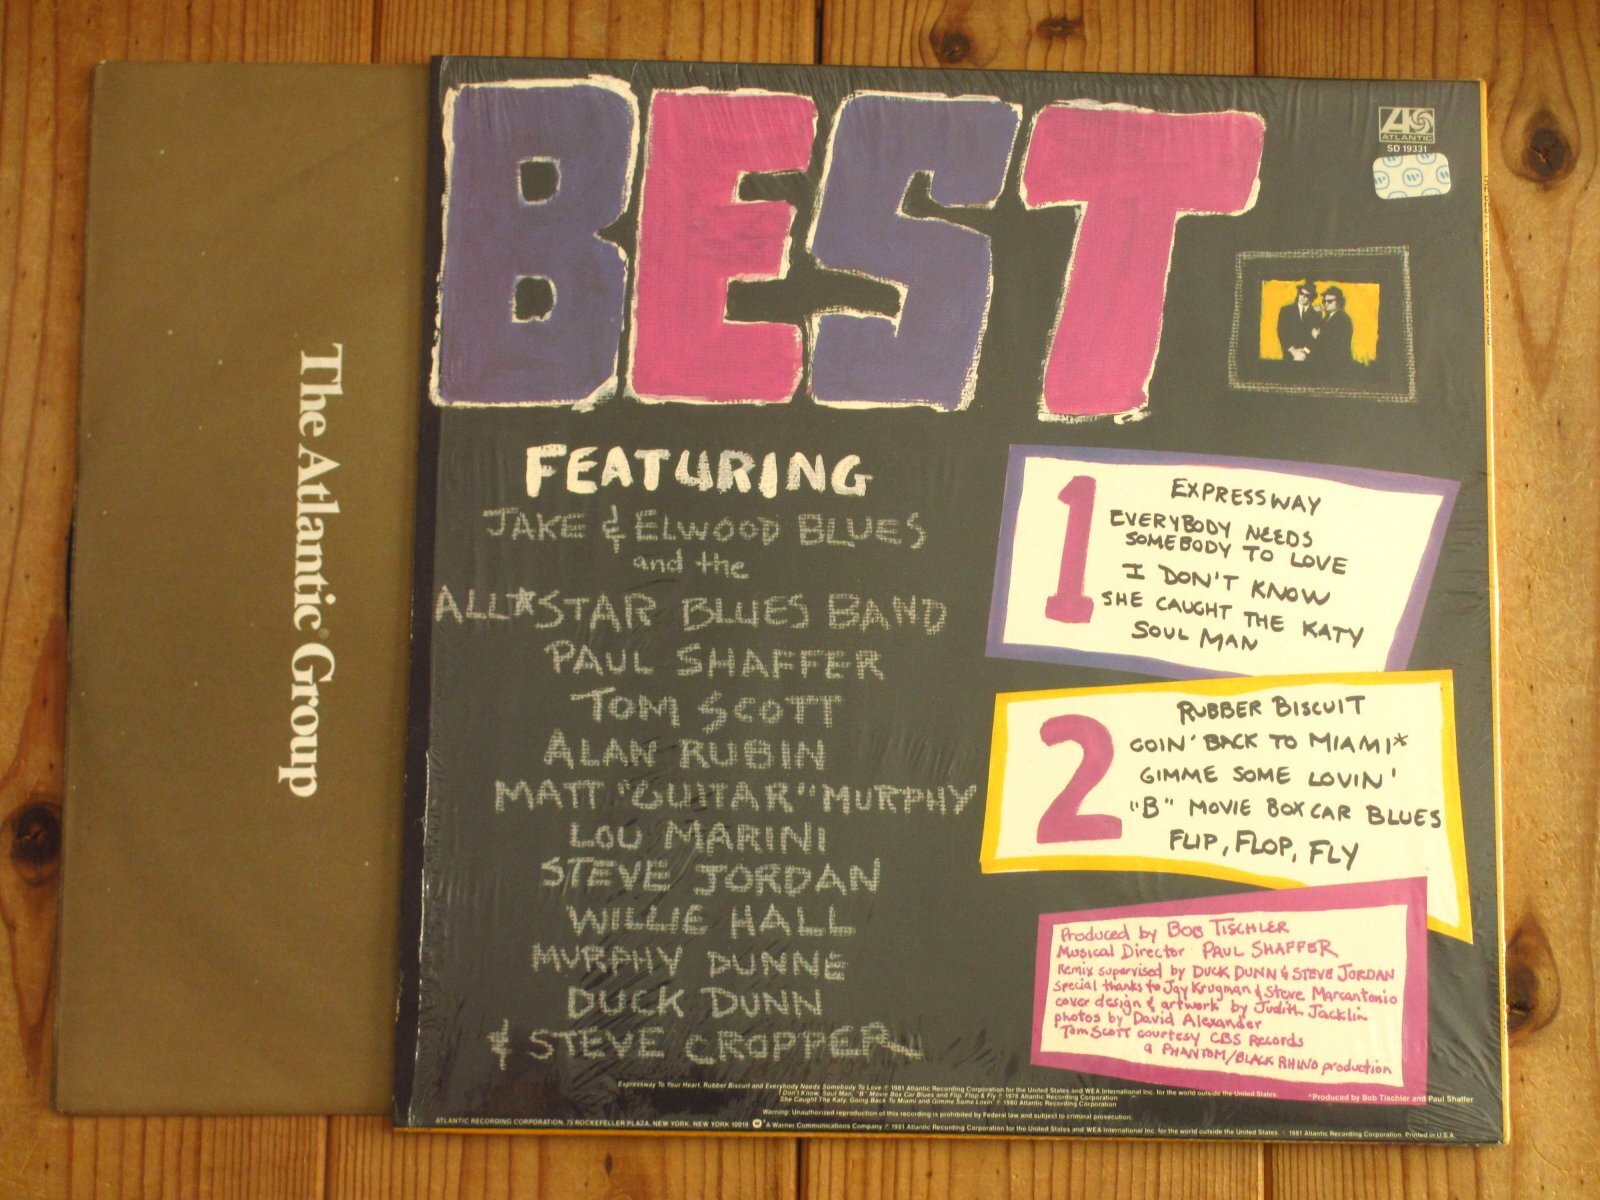 The Atlantic® Group
BEST
ATLANTIC
SD 19331
FEATURING
JAKE & ELWOOD BLUES
and the
ALL★STAR BLUES BAND
PAUL SHAFFER
TOM SCOTT
ALAN RUBIN
MATT "GUITAR" MURPHY
LOU MARINI
STEVE JORDAN
WILLIE HALL
MURPHY DUNNE
DUCK DUNN
& STEVE CROPPER
1
EXPRESSWAY
EVERYBODY NEEDS
SOMEBODY TO LOVE
I DON'T KNOW
SHE CAUGHT THE KATY
SOUL MAN
2
RUBBER BISCUIT
GOIN' BACK TO MIAMI*
GIMME SOME LOVIN'
"B" MOVIE BOXCAR BLUES
FLIP, FLOP, FLY
Produced by BOB TISCHLER
Musical Director PAUL SHAFFER
Remix supervised by DUCK DUNN & STEVE JORDAN
special thanks to Jay Krugman & Steve Marcantonio
cover design & artwork by Judith Jacklin
photos by David Alexander
Tom Scott courtesy CBS Records
a PHANTOM/BLACK RHINO production
Expressway To Your Heart, Rubber Biscuit and Everybody Needs Somebody To Love ℗ 1981 Atlantic Recording Corporation for the United States and WEA International Inc. for the world outside the United States.
I Don't Know, Soul Man, "B" Movie Box Car Blues and Flip, Flop & Fly ℗ 1978 Atlantic Recording Corporation
She Caught The Katy, Going Back To Miami and Gimme Some Lovin' ℗ 1980 Atlantic Recording Corporation
*Produced by Bob Tischler and Paul Shaffer
Warning: Unauthorized reproduction of this recording is prohibited by Federal law and subject to criminal prosecution.
ATLANTIC RECORDING CORPORATION, 75 ROCKEFELLER PLAZA, NEW YORK, NEW YORK 10019 A Warner Communications Company ℗ 1981 Atlantic Recording Corporation for the United States and WEA International Inc. for the world outside the United States. 1981 Atlantic Recording Corporation. Printed in U.S.A.